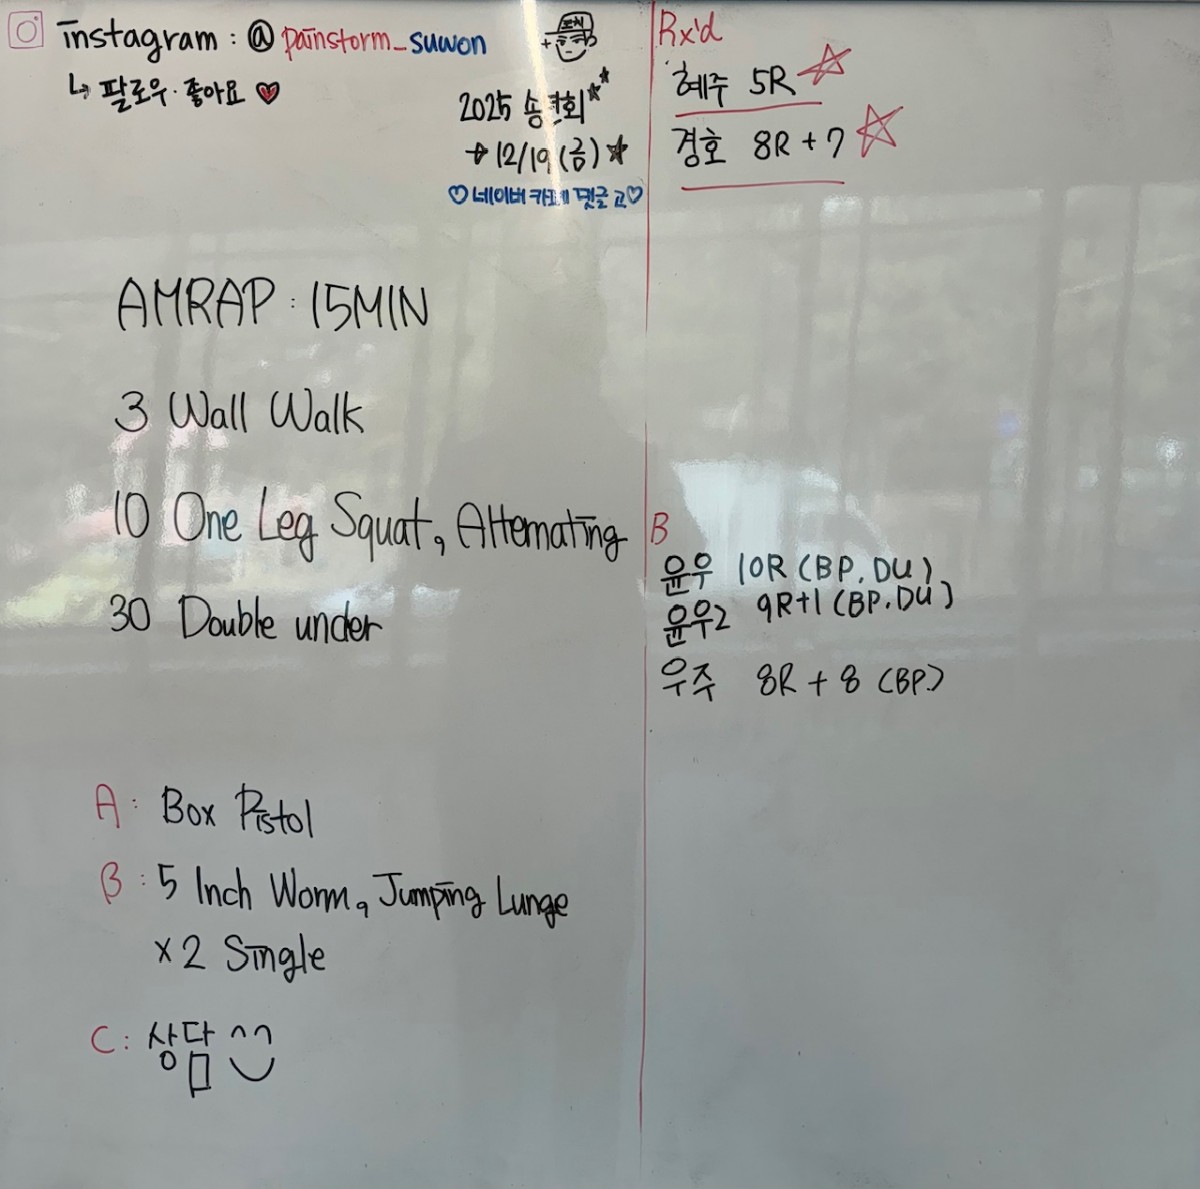 instagram : @ painstorm_suwon
↳ 팔로우·좋아요 ♥
2025 송년회★★
→ 12/19 (금) ★
♡네이버 카페 댓글 고♡
AMRAP : 15MIN
3 Wall Walk
10 One Leg Squat, Alternating
30 Double under
A : Box Pistol
B : 5 Inch Worm, Jumping Lunge
x 2 Single
C : 상담 ^^
Rx'd
혜주 5R ☆
경호 8R + 7 ☆
B
윤우 10R (BP. DU)
윤우2 9R+1 (BP. DU)
우주 8R + 8 (BP.)